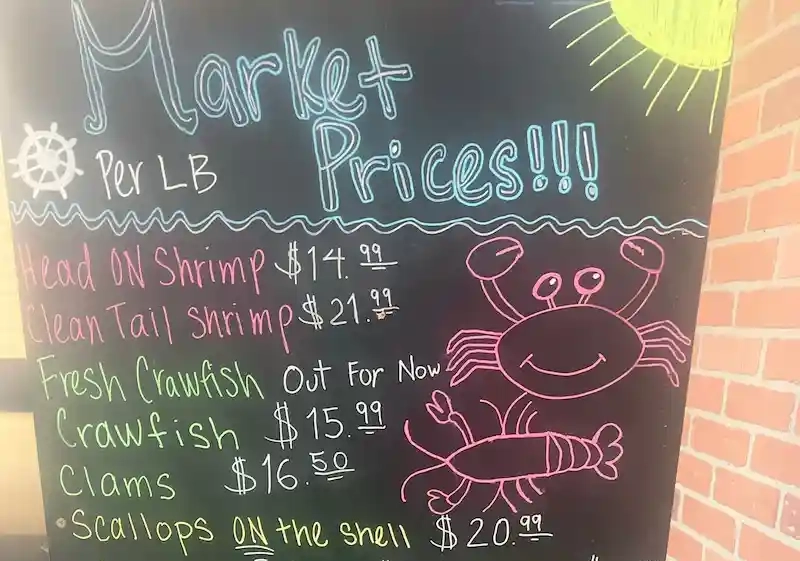 Market
Prices!!!
Per LB
Head ON Shrimp $14.99
Clean Tail Shrimp $21.99
Fresh Crawfish Out For Now
Crawfish $15.99
Clams $16.50
Scallops ON the Shell $20.99